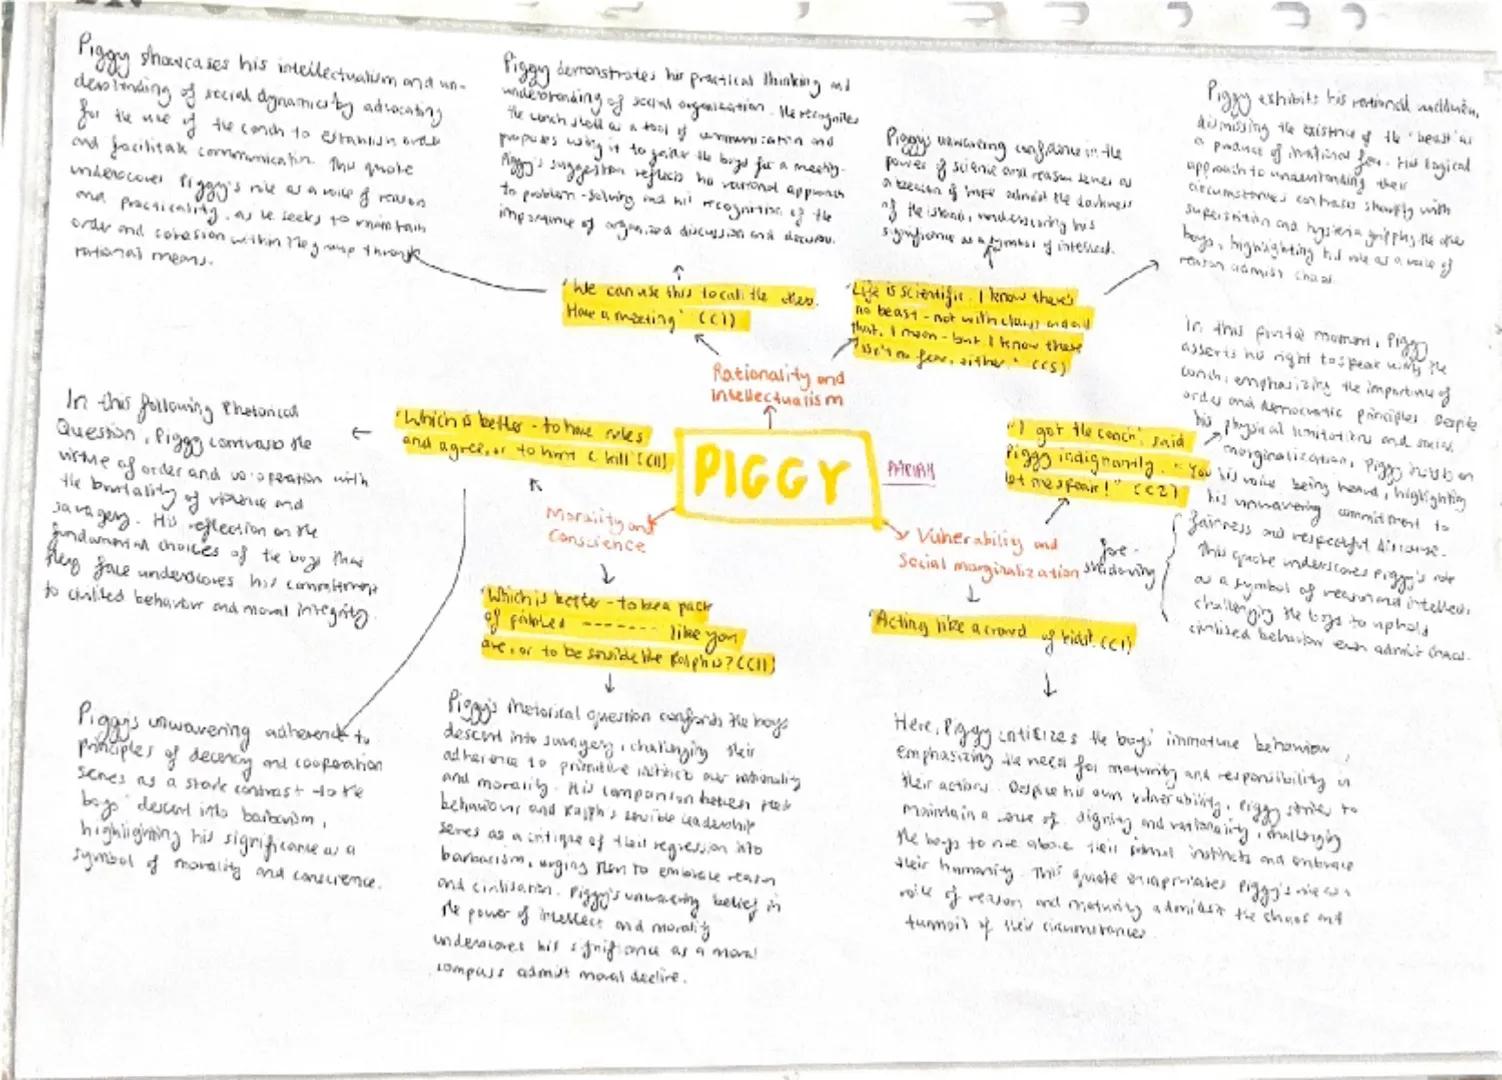 Piggy showcases his intellectualism and un-
derstanding of social dynamics by advocating
for the use of the conch to establish order
and facilitate communication. This quote
underscores Piggy's role as a voice of reason
and practicality, as he seeks to maintain
order and cohesion within the group through
rational means.
Piggy demonstrates his practical thinking and
understanding of social organization. He recognizes
the conch shell as a tool of communication and
proposes using it to gather the boys for a meeting.
Piggy's suggestion reflects his rational approach
to problem-solving and his recognition of the
importance of organized discussion and decision.
Piggy's unwavering confidence in the
power of science and reason serves as
a beacon of hope admist the darkness
of the island, underscoring his
significance as a symbol of intellect.
Piggy exhibits his rational
dismissing the existence of the 'beast' as
a product of irrational fear. His logical
approach to understanding their
circumstances contrasts sharply with
superstition and hysteria gripping the other
boys, highlighting his role as a voice of
reason admist chaos.
'We can use this to call the others.
Have a meeting' (C1)
'Life is scientific. I know there's
no beast - not with claws and all
that, I mean - but I know there
isn't no fear, either.' (C5)
Rationality and
Intellectualism
In this pivotal moment, Piggy
asserts his right to speak with the
conch, emphasizing the importance of
order and democratic principles. Despite
his physical limitations and social
marginalization, Piggy insists on
his voice being heard, highlighting
his unwavering commitment to
fairness and respectful discourse.
This quote underscores Piggy's role
as a symbol of reason and intellect,
challenging the boys to uphold
civilised behavior even admist chaos.
In this following Rhetorical
Question, Piggy contrasts the
virtue of order and co-operation with
the brutality of violence and
savagery. His reflection on the
fundamental choices of the boys that
they face underscores his commitment
to civilised behavior and moral integrity.
'Which is better - to have rules
and agree, or to hunt & kill' (C11)
PIGGY
PARIAH
"I got the conch", said
Piggy indignantly. "You
let me speak!" (C2)
Morality and
Conscience
Vulnerability and
Social marginalization
fore-
shadowing
'Which is better - to be a pack
of painted ------- like you
are, or to be sensible like Ralph is? (C11)
'Acting like a crowd of kids!' (C1)
Piggy's unwavering adherence to
principles of decency and cooperation
serves as a stark contrast to the
boys' descent into barbarism,
highlighting his significance as a
symbol of morality and conscience.
Piggy's rhetorical question confronts the boys
descent into savagery, challenging their
adherence to primitive instinct over rationality
and morality. His comparison between their
behaviour and Ralph's sensible leadership
serves as a critique of their regression into
barbarism, urging them to embrace reason
and civilisation. Piggy's unwavering belief in
the power of intellect and morality
underscores his significance as a moral
compass admist moral decline.
Here, Piggy critisizes the boys' immature behaviour,
emphasizing the need for maturity and responsibility in
their actions. Despite his own vulnerability, Piggy strives to
maintain a sense of dignity and rationality, challenging
the boys to rise above their primal instincts and embrace
their humanity. This quote Piggy's role as a
voice of reason and maturity admidst the chaos and
turmoil of their circumstances